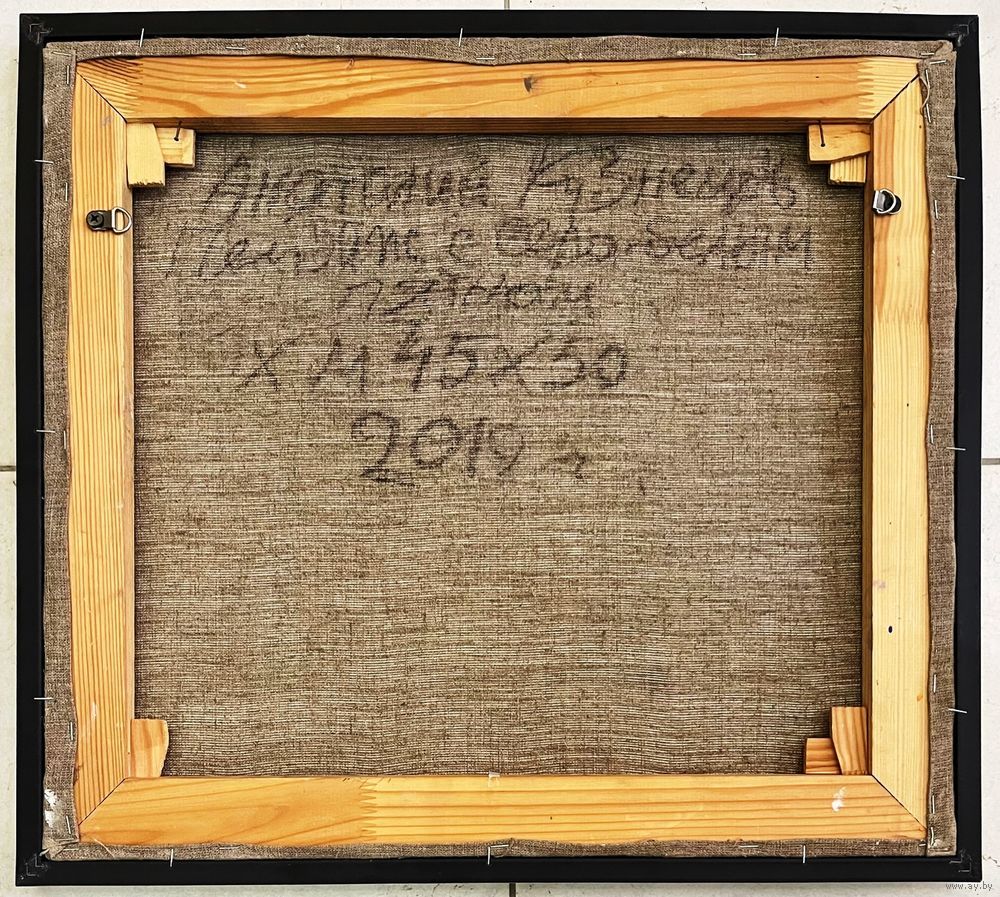 Анатолий Кузнецов
Пейзаж с серо-белым
пятном
ХМ 45х50
2019 г
www.ay.by